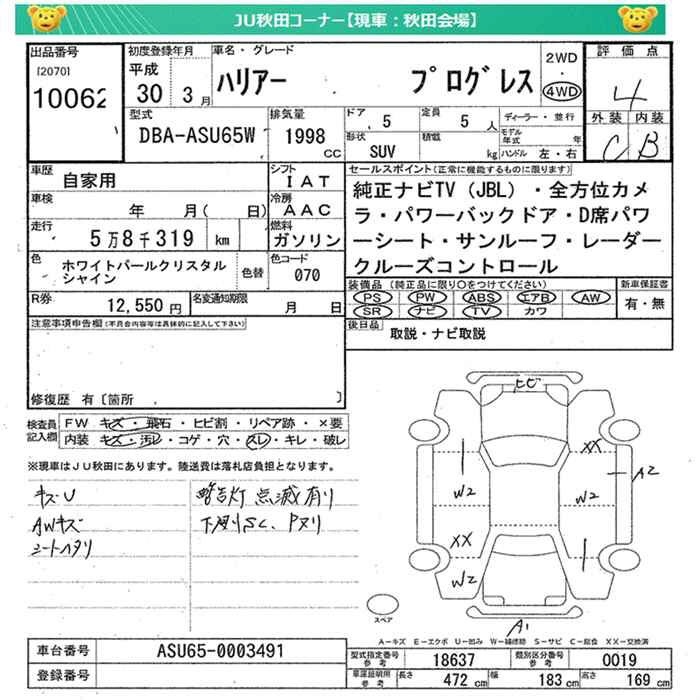 JU秋田コーナー【現車：秋田会場】
出品番号 初度登録年月 車名・グレード 2WD・4WD 評価点
[2070]
10062 平成30 3月 ハリアー プログレス 4
型式 排気量 ドア 定員 ディーラー・並行 外装 内装
DBA-ASU65W 1998cc 5 5人 モデル年式 年 C B
形状 SUV 積載 kg ハンドル 左・右
車歴 自家用 シフト IAT
車検 年 月( 日) 冷房 AAC
走行 5万8千319 km 燃料 ガソリン
色 ホワイトパールクリスタルシャイン 色替 色コード 070
R券 12,550円 名変通知期限 月 日
セールスポイント(正常に機能するものに限ります)
純正ナビTV(JBL)・全方位カメ
ラ・パワーバックドア・D席パワ
ーシート・サンルーフ・レーダー
クルーズコントロール
装備品(純正品に限り○をつけてください) 新車保証書
PS PW ABS エアB AW 有・無
SR ナビ TV カワ
後日品 取説・ナビ取説
注意事項申告欄(不具合内容等は具体的に記入して下さい)
修復歴 有[箇所 ]
検査員記入欄 FW キズ・飛石・ヒビ割・リペア跡・×要
内装 キズ・汚レ・コゲ・穴・スレ・キレ・破レ
※現車はJU秋田にあります。陸送費は落札店負担となります。
キズU 警告灯点滅有り
AWキズ 下廻りSC、Pヌリ
シートヘタリ
ヒビ
XX
A2
W2 W2
XX
W2
スペア
A1
A-キズ E-エクボ U-凹み W-補修跡 S-サビ C-腐食 XX-交換済
車台番号 ASU65-0003491
登録番号
型式指定番号参考 18637 類別区分番号参考 0019
車庫証明用参考 長さ 472 cm 幅 183 cm 高さ 169 cm